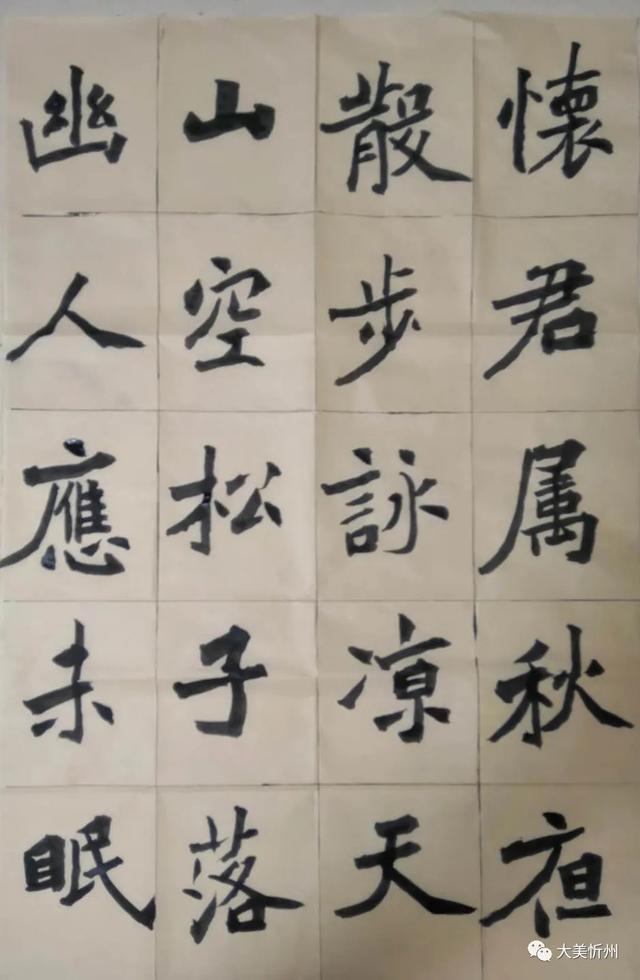 懐君属秋亱
散步詠凉天
山空松子落
幽人應未眠
大美忻州